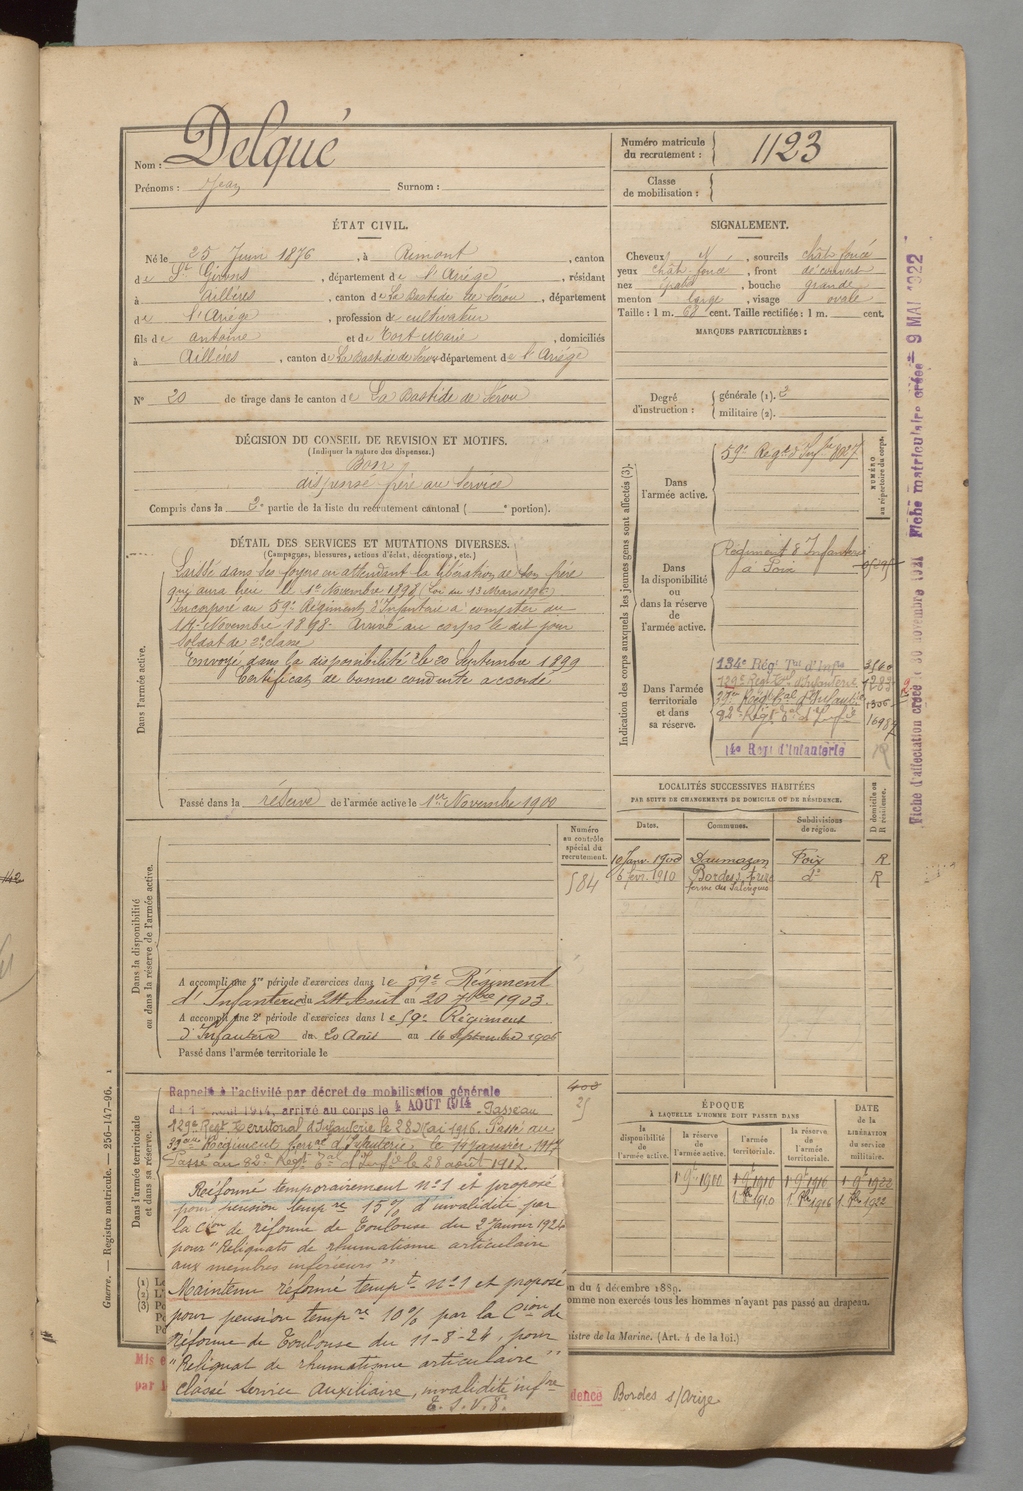 Nom : Delqué
Prénoms : Jean Surnom :
Numéro matricule du recrutement : 1123
Classe de mobilisation :
ÉTAT CIVIL.
Né le 25 Juin 1876, à Rimont, canton
de St Girons, département de l'Ariège, résidant
à Aillères, canton de La Bastide de Sérou, département
de l'Ariège, profession de cultivateur
fils de Antoine et de Tort Marie, domiciliés
à Aillères, canton de La Bastide de Sérou département de l'Ariège
N° 20 de tirage dans le canton de La Bastide de Sérou
SIGNALEMENT.
Cheveux N, sourcils chât-foncé
yeux chât-foncé, front découvert
nez, bouche grande
menton large, visage ovale
Taille : 1 m. 68 cent. Taille rectifiée : 1 m. cent.
MARQUES PARTICULIÈRES :
Degré d'instruction : générale (1). 3
militaire (2).
DÉCISION DU CONSEIL DE REVISION ET MOTIFS.
(Indiquer la nature des dispenses.)
Bon
dispensé frère au service
Compris dans la 2e partie de la liste du recrutement cantonal ( e portion).
DÉTAIL DES SERVICES ET MUTATIONS DIVERSES.
(Campagnes, blessures, actions d'éclat, décorations, etc.)
Dans l'armée active.
Laissé dans ses foyers en attendant la libération de son frère
qui aura lieu le 1er Novembre 1898 (Loi du 13 Mars 1896)
Incorporé au 59e Régiment d'Infanterie à compter du
14 Novembre 1898. Arrivé au corps le dit jour
soldat de 2e classe
Envoyé dans la disponibilité le 20 Septembre 1899
Certificat de bonne conduite accordé
Passé dans la réserve de l'armée active le 1er Novembre 1900
Indication des corps auxquels les jeunes gens sont affectés (3).
NUMÉRO au répertoire du corps.
Dans l'armée active.
59e Régt d'Infie
Dans la disponibilité ou dans la réserve de l'armée active.
Régiment d'Infanterie
à Foix
Dans l'armée territoriale et dans sa réserve.
134e Régt Tal d'Infie
129e Régt Tal d'Infanterie
39e Régt Tal d'Infantie
82e Régt Tal d'Infie
14e Régt d'Infanterie
LOCALITÉS SUCCESSIVES HABITÉES
PAR SUITE DE CHANGEMENTS DE DOMICILE OU DE RÉSIDENCE.
Dates. Communes. Subdivisions de région. D domicile ou R résidence.
19 Janv. 1908 Daumazan Foix R
6 févr. 1910 Bordes s/ Arize do R
ferme des
Dans la disponibilité ou dans la réserve de l'armée active.
Numéro au contrôle spécial du recrutement.
584
A accompli une 1re période d'exercices dans le 59e Régiment
d'Infanterie du 24 Août au 20 7bre 1903.
A accompli une 2e période d'exercices dans le 59e Régiment
d'Infanterie du 20 Août au 16 Septembre 1906
Passé dans l'armée territoriale le
Dans l'armée territoriale et dans sa réserve.
Rappelé à l'activité par décret de mobilisation générale
du 1 Août 1914, arrivé au corps le 4 AOUT 1914. Passé au
129e Régt Territorial d'Infanterie le 28 Mai 1916. Passé au
39ème Régiment Terral d'Infanterie, le Janvier 1917
Passé au 82e Régt Tal d'Infie le 28 août 1917.
Réformé temporairement n°1 et proposé
pour pension tempre 15% d'invalidité par
la Cion de réforme de Toulouse du 2 Janvier 1924
pour "Reliquats de rhumatisme articulaire
aux membres inférieurs"
Maintenu réformé tempt n°1 et proposé
pour pension tempre 10% par la Cion de
Réforme de Toulouse du 11-8-24, pour
"Reliquat de rhumatisme articulaire"
classé Service Auxiliaire, invalidité infre
E. S. V. P.
ÉPOQUE
À LAQUELLE L'HOMME DOIT PASSER DANS
la disponibilité de l'armée active. la réserve de l'armée active. l'armée territoriale. la réserve de l'armée territoriale.
DATE de la LIBÉRATION du service militaire.
1 9e 1900 1 9e 1910 1 9e 1916 1 9e 1922
du 4 décembre 1889.
omme non exercés tous les hommes n'ayant pas passé au drapeau.
nistre de la Marine. (Art. 4 de la loi.)
Mis e
par l
dence Bordes s/Arize
Guerre. — Registre matricule. — 256-147-96.
Fiche d'affectation créée le 30 novembre 1921 Fiche matriculaire créée 9 MAI 1922